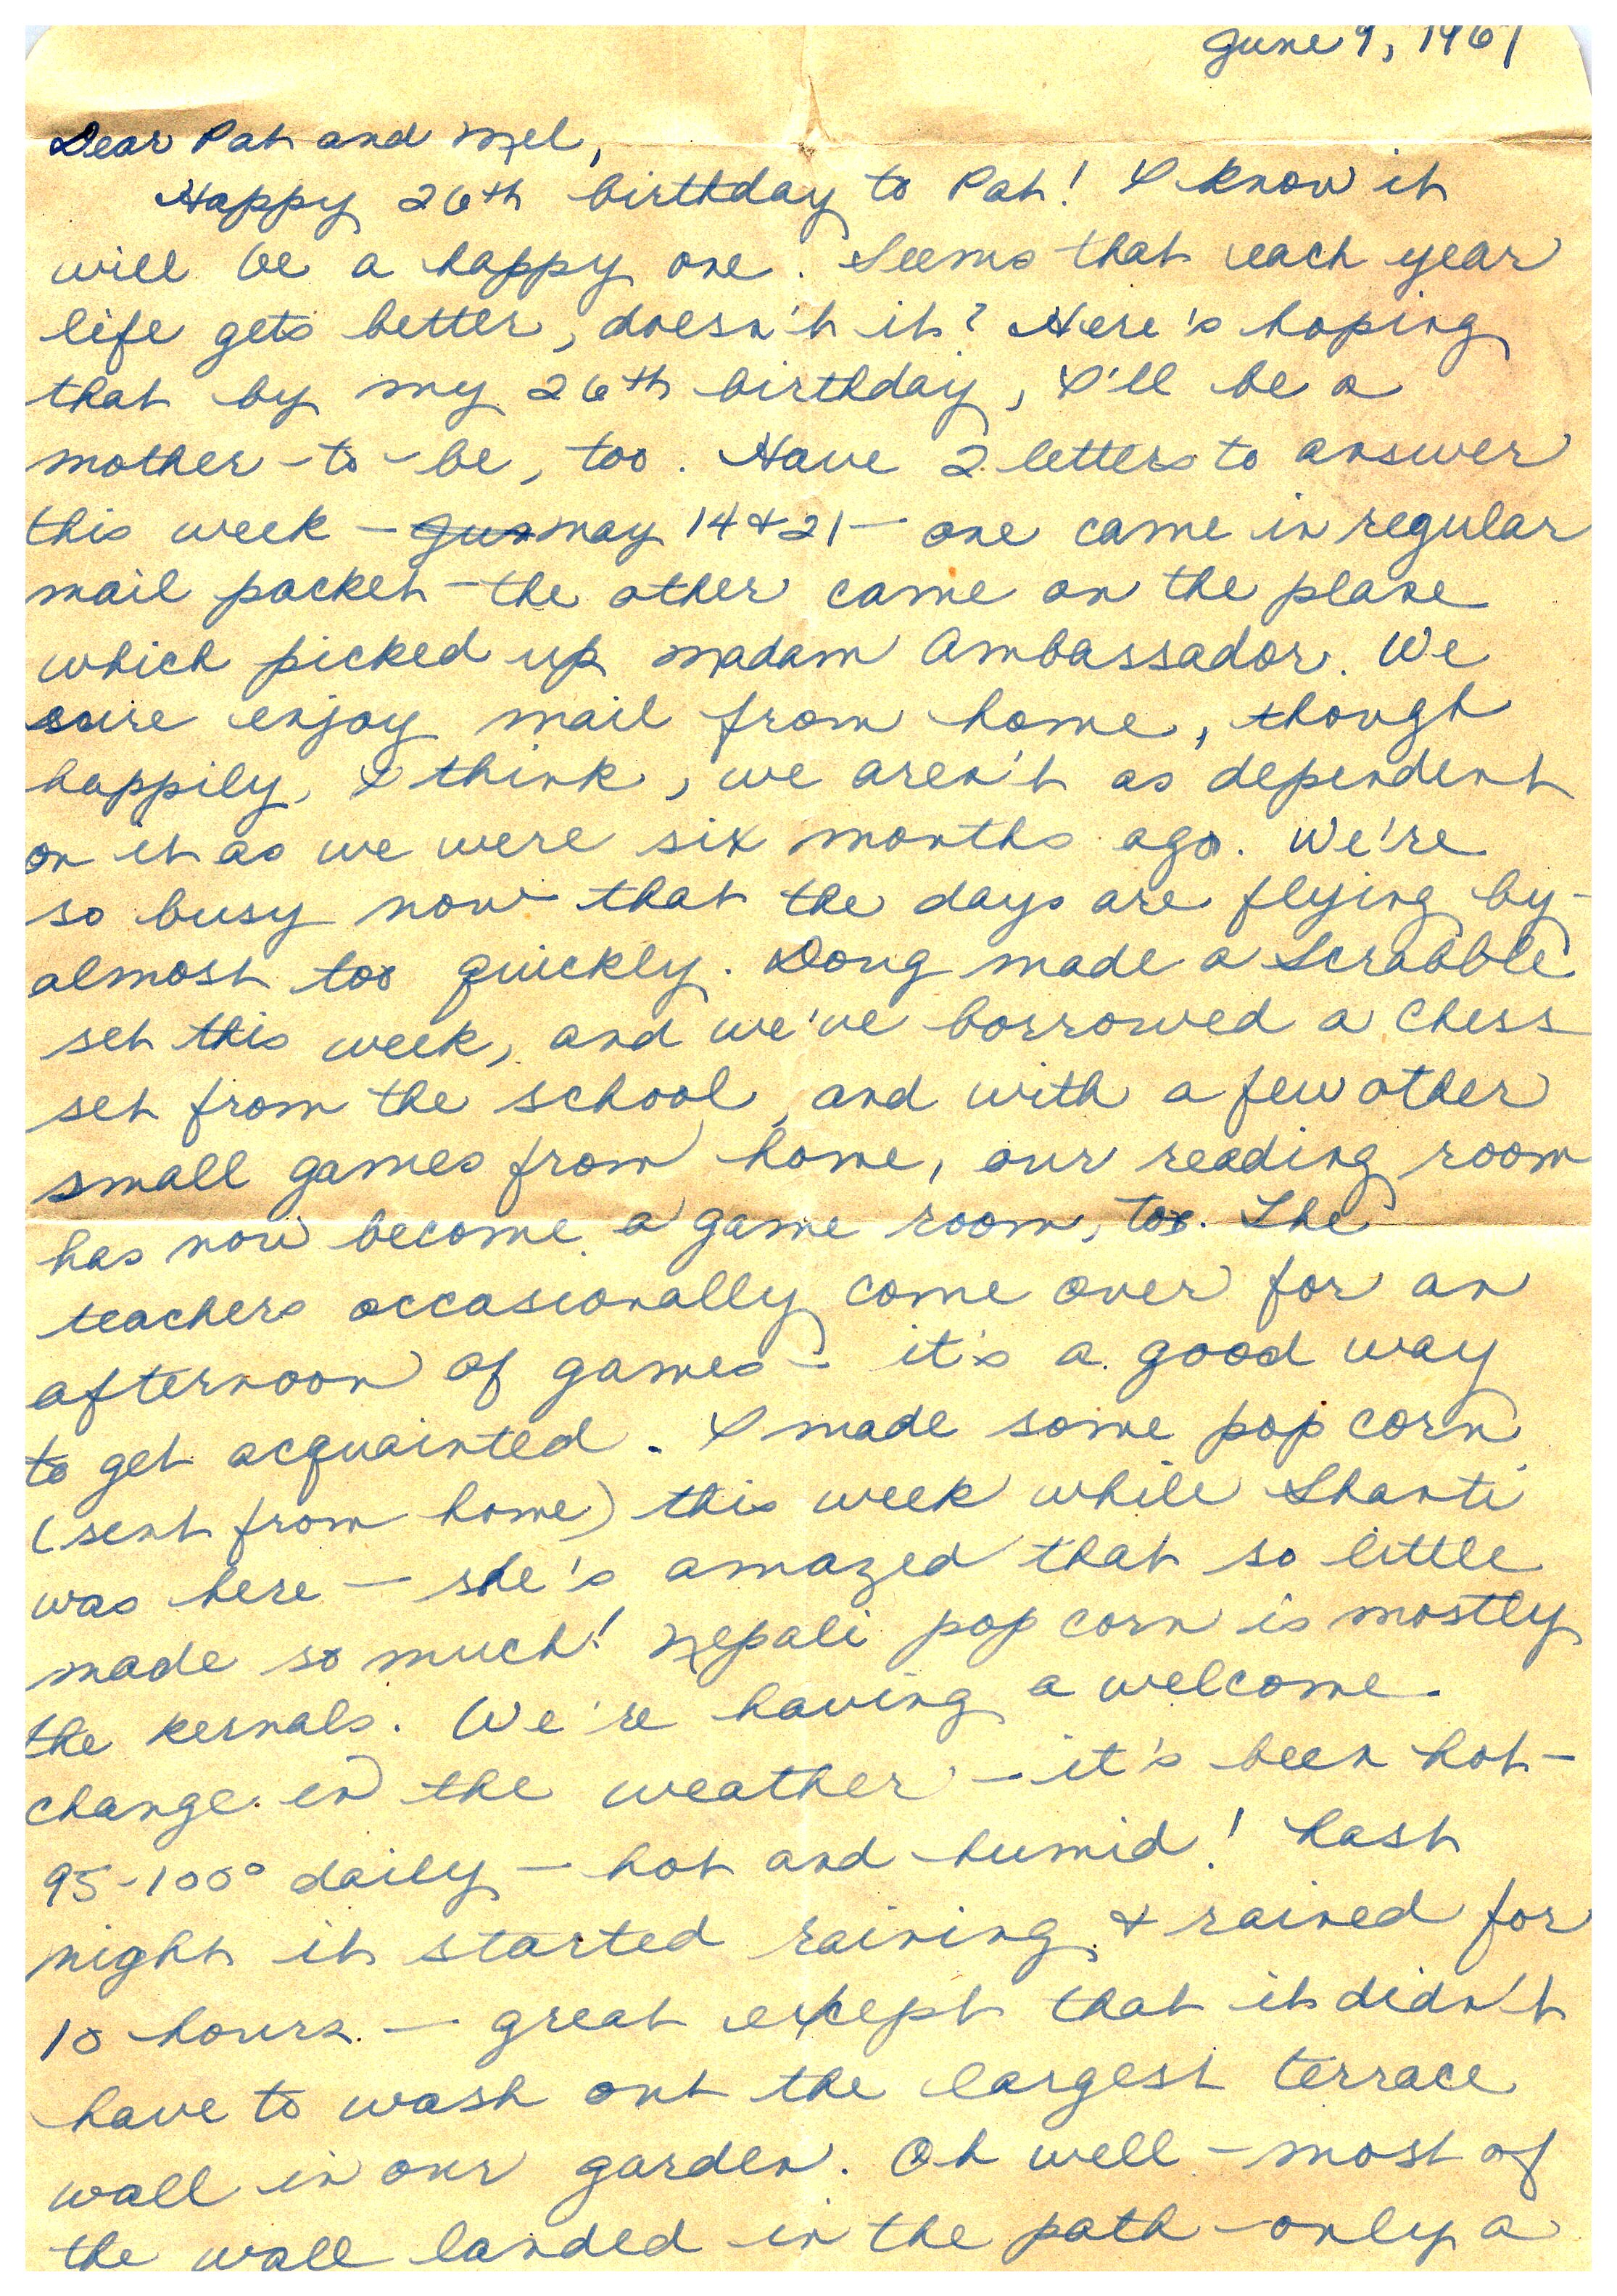 June 9, 1967
Dear Pat and Mel,
Happy 26th birthday to Pat! I know it
will be a happy one. Seems that each year
life gets better, doesn't it? Here's hoping
that by my 26th birthday, I'll be a
mother-to-be, too. Have 2 letters to answer
this week - Jun May 14 & 21 - one came in regular
mail packet - the other came on the plane
which picked up Madam Ambassador. We
sure enjoy mail from home, though
happily, I think, we aren't as dependent
on it as we were six months ago. We're
so busy now that the days are flying by -
almost too quickly. Doug made a Scrabble
set this week, and we've borrowed a chess
set from the school, and with a few other
small games from home, our reading room
has now become a game room, too. The
teachers occasionally come over for an
afternoon of games - it's a good way
to get acquainted. I made some pop corn
(sent from home) this week while Shanti
was here - she's amazed that so little
made so much! Nepali pop corn is mostly
the kernals. We're having a welcome
change in the weather - it's been hot -
95-100° daily - hot and humid! Last
night it started raining & rained for
10 hours - great except that it didn't
have to wash out the largest terrace
wall in our garden. Oh well - most of
the wall landed in the path - only a